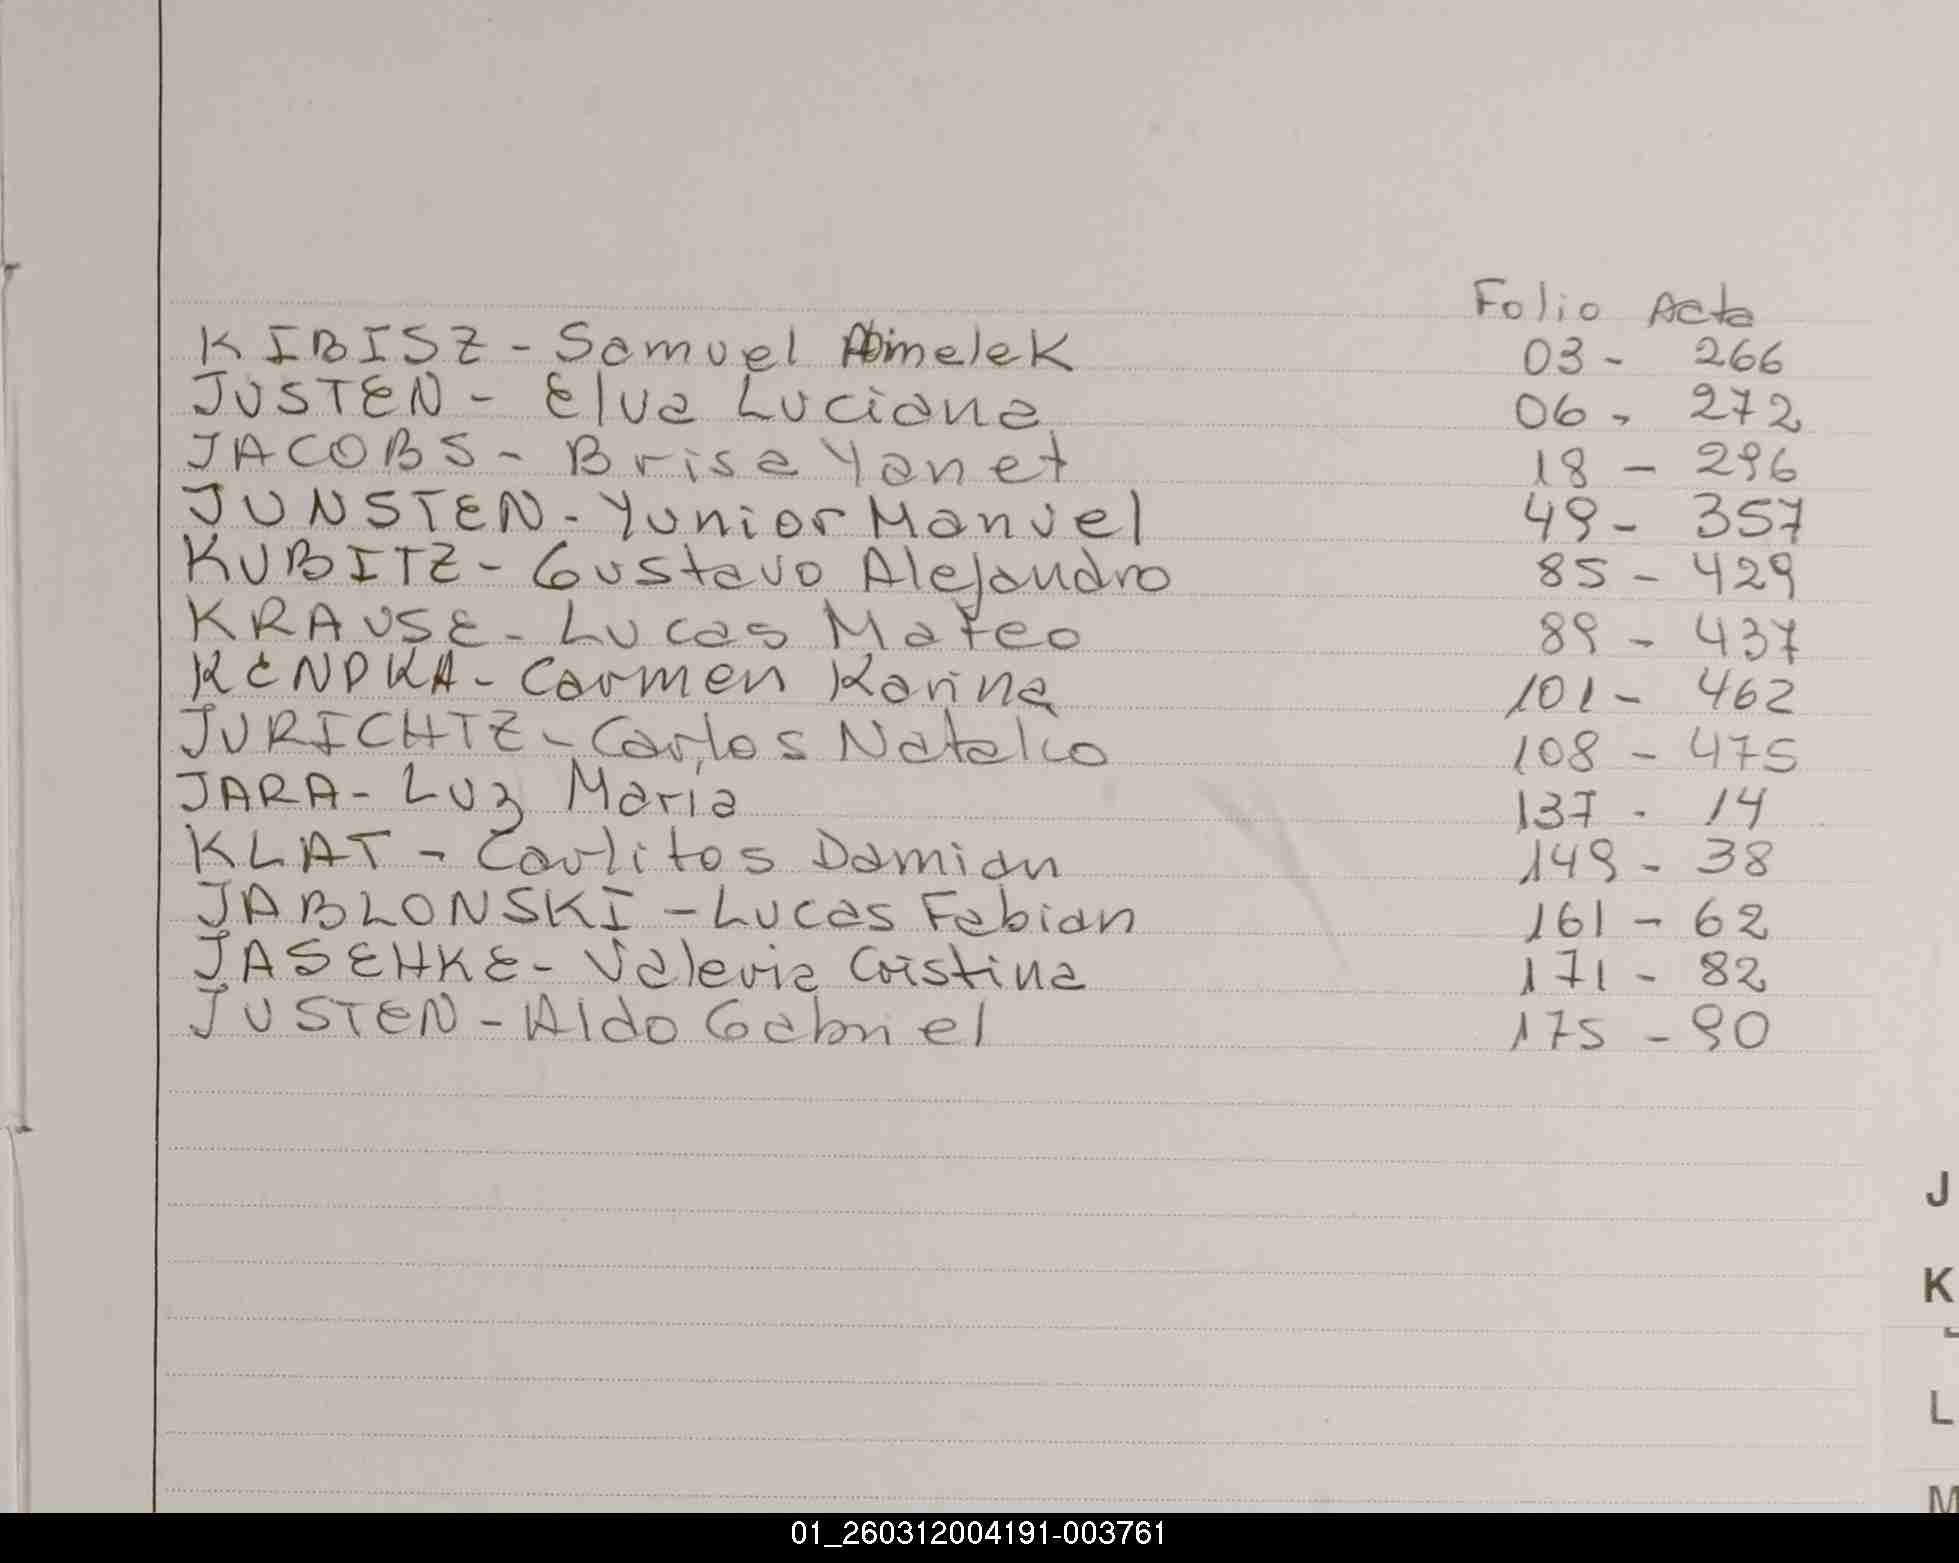 Folio Acta
KIBISZ - Samuel Abimelek 03 - 266
JUSTEN - Elva Luciana 06 - 272
JACOBS - Brisa Yanet 18 - 296
JUNSTEN - Yunior Manuel 49 - 357
KUBITZ - Gustavo Alejandro 85 - 429
KRAUSE - Lucas Mateo 89 - 437
KENDKA - Carmen Karina 101 - 462
JURICHTZ - Carlos Natalio 108 - 475
JARA - Luz Maria 137 - 14
KLAT - Carlitos Damian 149 - 38
JABLONSKI - Lucas Fabian 161 - 62
JASEHKE - Valeria Cristina 171 - 82
JUSTEN - Aldo Gabriel 175 - 90
J
K
L
M
01_260312004191-003761